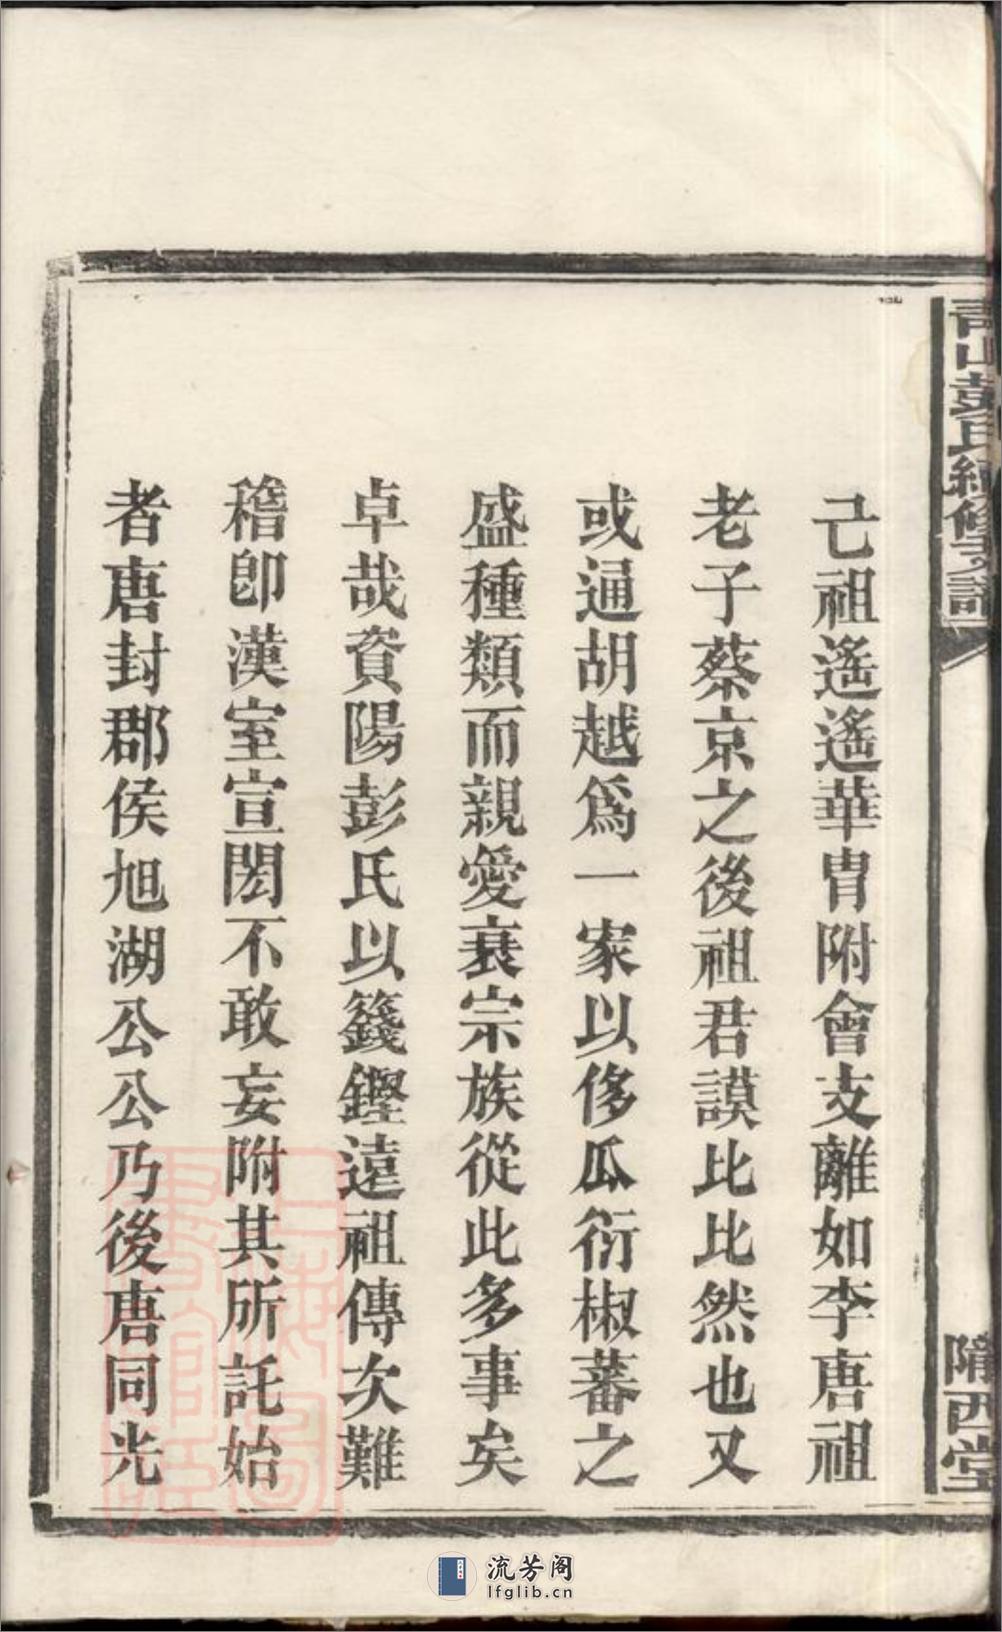 己祖遙遙華冑附會支離如李唐祖
老子蔡京之後祖君謨比比然也又
或逼胡越爲一家以侈瓜衍椒蕃之
盛種類而親愛衰宗族從此多事矣
卓哉資陽彭氏以籛鏗遠祖傳次難
稽卽漢室宣閎不敢妄附其所託始
者唐封郡侯旭湖公公乃後唐同光
青山彭氏續修支譜
隴西堂
流芳阁
lfglib.cn